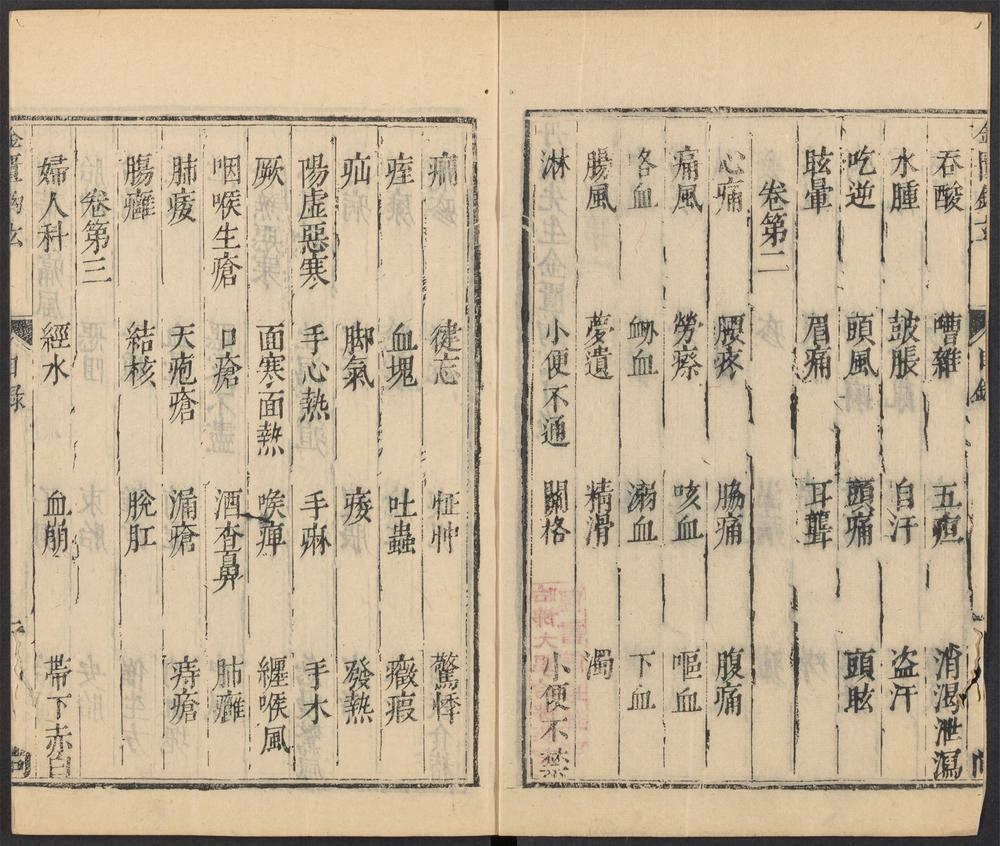 吞酸 嘈雜 五疸 消渴泄瀉
水腫 鼓脹 自汗 盜汗
吃逆 頭風 頭痛 頭眩
眩暈 眉痛 耳聾
卷第二
心痛 腰疼 脇痛 腹痛
痛風 勞瘵 咳血 嘔血
咯血 衂血 溺血 下血
腸風 夢遺 精滑 濁
淋 小便不通 關格 小便不禁
癇 健忘 怔忡 驚悸
痓 血塊 吐蟲 癥瘕
疝 脚氣 痿 發熱
陽虛惡寒 手心熱 手麻 手木
厥 面寒面熱 喉痺 纏喉風
咽喉生瘡 口瘡 酒查鼻 肺癰
肺痿 天疱瘡 漏瘡 痔瘡
腸癰 結核 脫肛
卷第三
婦人科 經水 血崩 帶下赤白
目錄